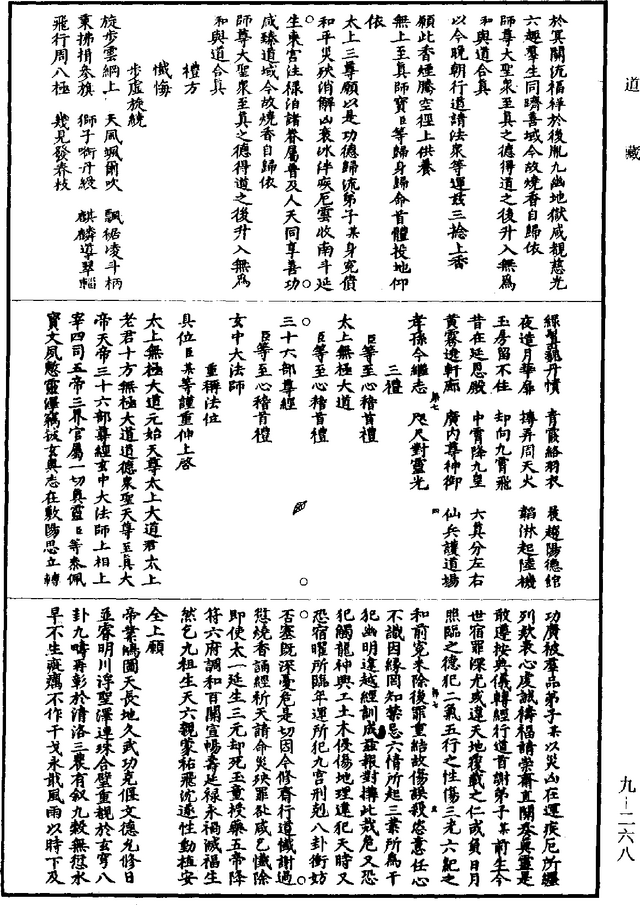 道藏
於冥關流福祥於後胤九幽地獄咸覩慈光
六趣羣生同躋善域今故燒香自歸依
師尊大聖衆至真之德得道之後升入無爲
和與道合真
以今晚朝行道請法衆等運茲三捻上香
願此香煙騰空徑上供養
無上至真師寶臣等歸身歸命首體投地仰
依
太上三尊願以是功德歸流弟子某身冤債
和平災殃消解凶衰冰泮疾厄雲收南斗延
生東宮注祿洎諸眷屬普及人天同享善功
咸臻道域今故燒香自歸依
師尊大聖衆至真之德得道之後升入無爲
和與道合真
禮方
懺悔
步虛旋繞
旋步雲綱上 天風颯爾吹 飄裾凌斗柄
秉拂揖參旗 獅子銜丹綬 麒麟導翠輜
飛行周八極 幾見發春枝
綠鬢龍丹幘 青霞絡羽衣 晨趨陽德館
夜造月華扉 摶弄周天火 韜淋起陸機
玉房留不住 却向九霄飛
昔在延恩殿 中霄降九皇 六真分左右
黃霧遶軒廊 廣內尊神御 仙兵護道場
孝孫今繼志 咫尺對靈光
三禮
臣等至心稽首禮
太上無極大道
臣等至心稽首禮
三十六部尊經
臣等至心稽首禮
玄中大法師
重稱法位
具位臣某等謹重伸上啓
太上無極大道元始天尊太上大道君太上
老君十方無極大道道德衆聖天尊至真大
帝天帝三十六部尊經玄中大法師上相上
宰四司五帝三界官屬一切真靈臣等忝佩
寶文夙愍靈澤竊祓玄奧志在敷陽思立轉
功廣被羣品弟子某以災凶在運疾厄所纏
列款衷心虔誠禱福請崇齋直關奏真靈是
敢遵按典儀轉經行道首謝弟子某前生今
世宿罪深尤或違天地覆載之仁或負日月
照臨之德犯二氣五行之性傷三光六紀之
和前冤未除後罪重結故傷誤殺恣意任心
不識因緣罔知禁忌六情所起三業所爲干
犯幽明違越經訓咸茲報對搆此災危又恐
犯觸龍神興工土木侵傷地理違犯天時又
恐宿曜所臨年運所犯九宮刑剋八卦衝妨
否塞既深憂危是切因今修齋行道懺謝過
愆燒香誦經祈天請命災殃罪咎咸乞懺除
即使太一延生三元却死玉童授藥五帝降
符六府調和百關宣暢壽延祿永禍滅福生
然乞九祖生天六親蒙祐飛沈遂性動植安
全上願
帝業鴻圖天長地久武功克偃文德允修日
並睿明川浮聖澤連珠合璧重覩於玄穹八
卦九疇再彰於清洛三農有叙九穀無愆水
旱不生疵癘不作干戈永戢風雨以時下及
九－二六八